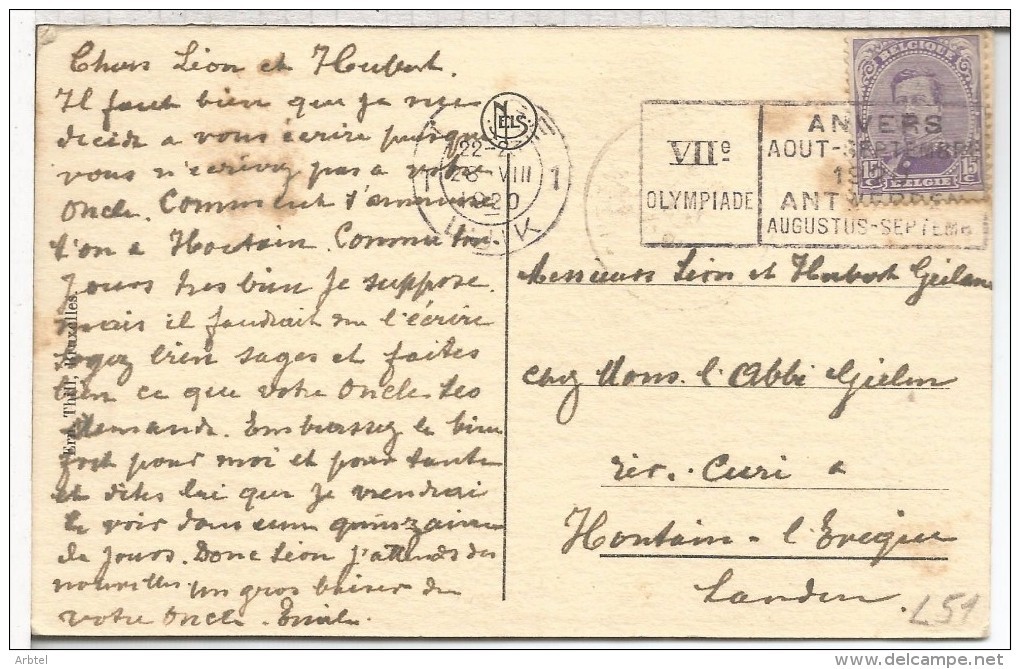 Chers Léon et Hubert.
Il faut bien que je me
decide a vous écrire puisque
vous n'ecrivez pas a votre
Oncle. Comment s'amuse
t'on a Houtain. Comme tou-
jours tres bien je suppose.
mais il faudrait me l'écrire
soyez bien sages et faites
bien ce que votre Oncle
demande. Embrassez le bien
fort pour moi et pour tante
et dites lui que je viendrai
le voir dans une quinzaine
de jours. Donc Léon j'attends des
nouvelles Un gros baiser de
votre Oncle. Emile.
Ern. Thill, Bruxelles.
NELS
1 1
28 VIII
1920
VIIe
OLYMPIADE
ANVERS
AOUT-SEPTEMBRE
ANTWERPEN
AUGUSTUS-SEPTEMB
BELGIQUE
15 15
BELGIE
Messieurs Léon et Hubert Gielen
chez Mons. l'Abbé Gielen
rév. Curé a
Houtain-l'Evêque
Landen.
L51
Arbtel
delcampe.net